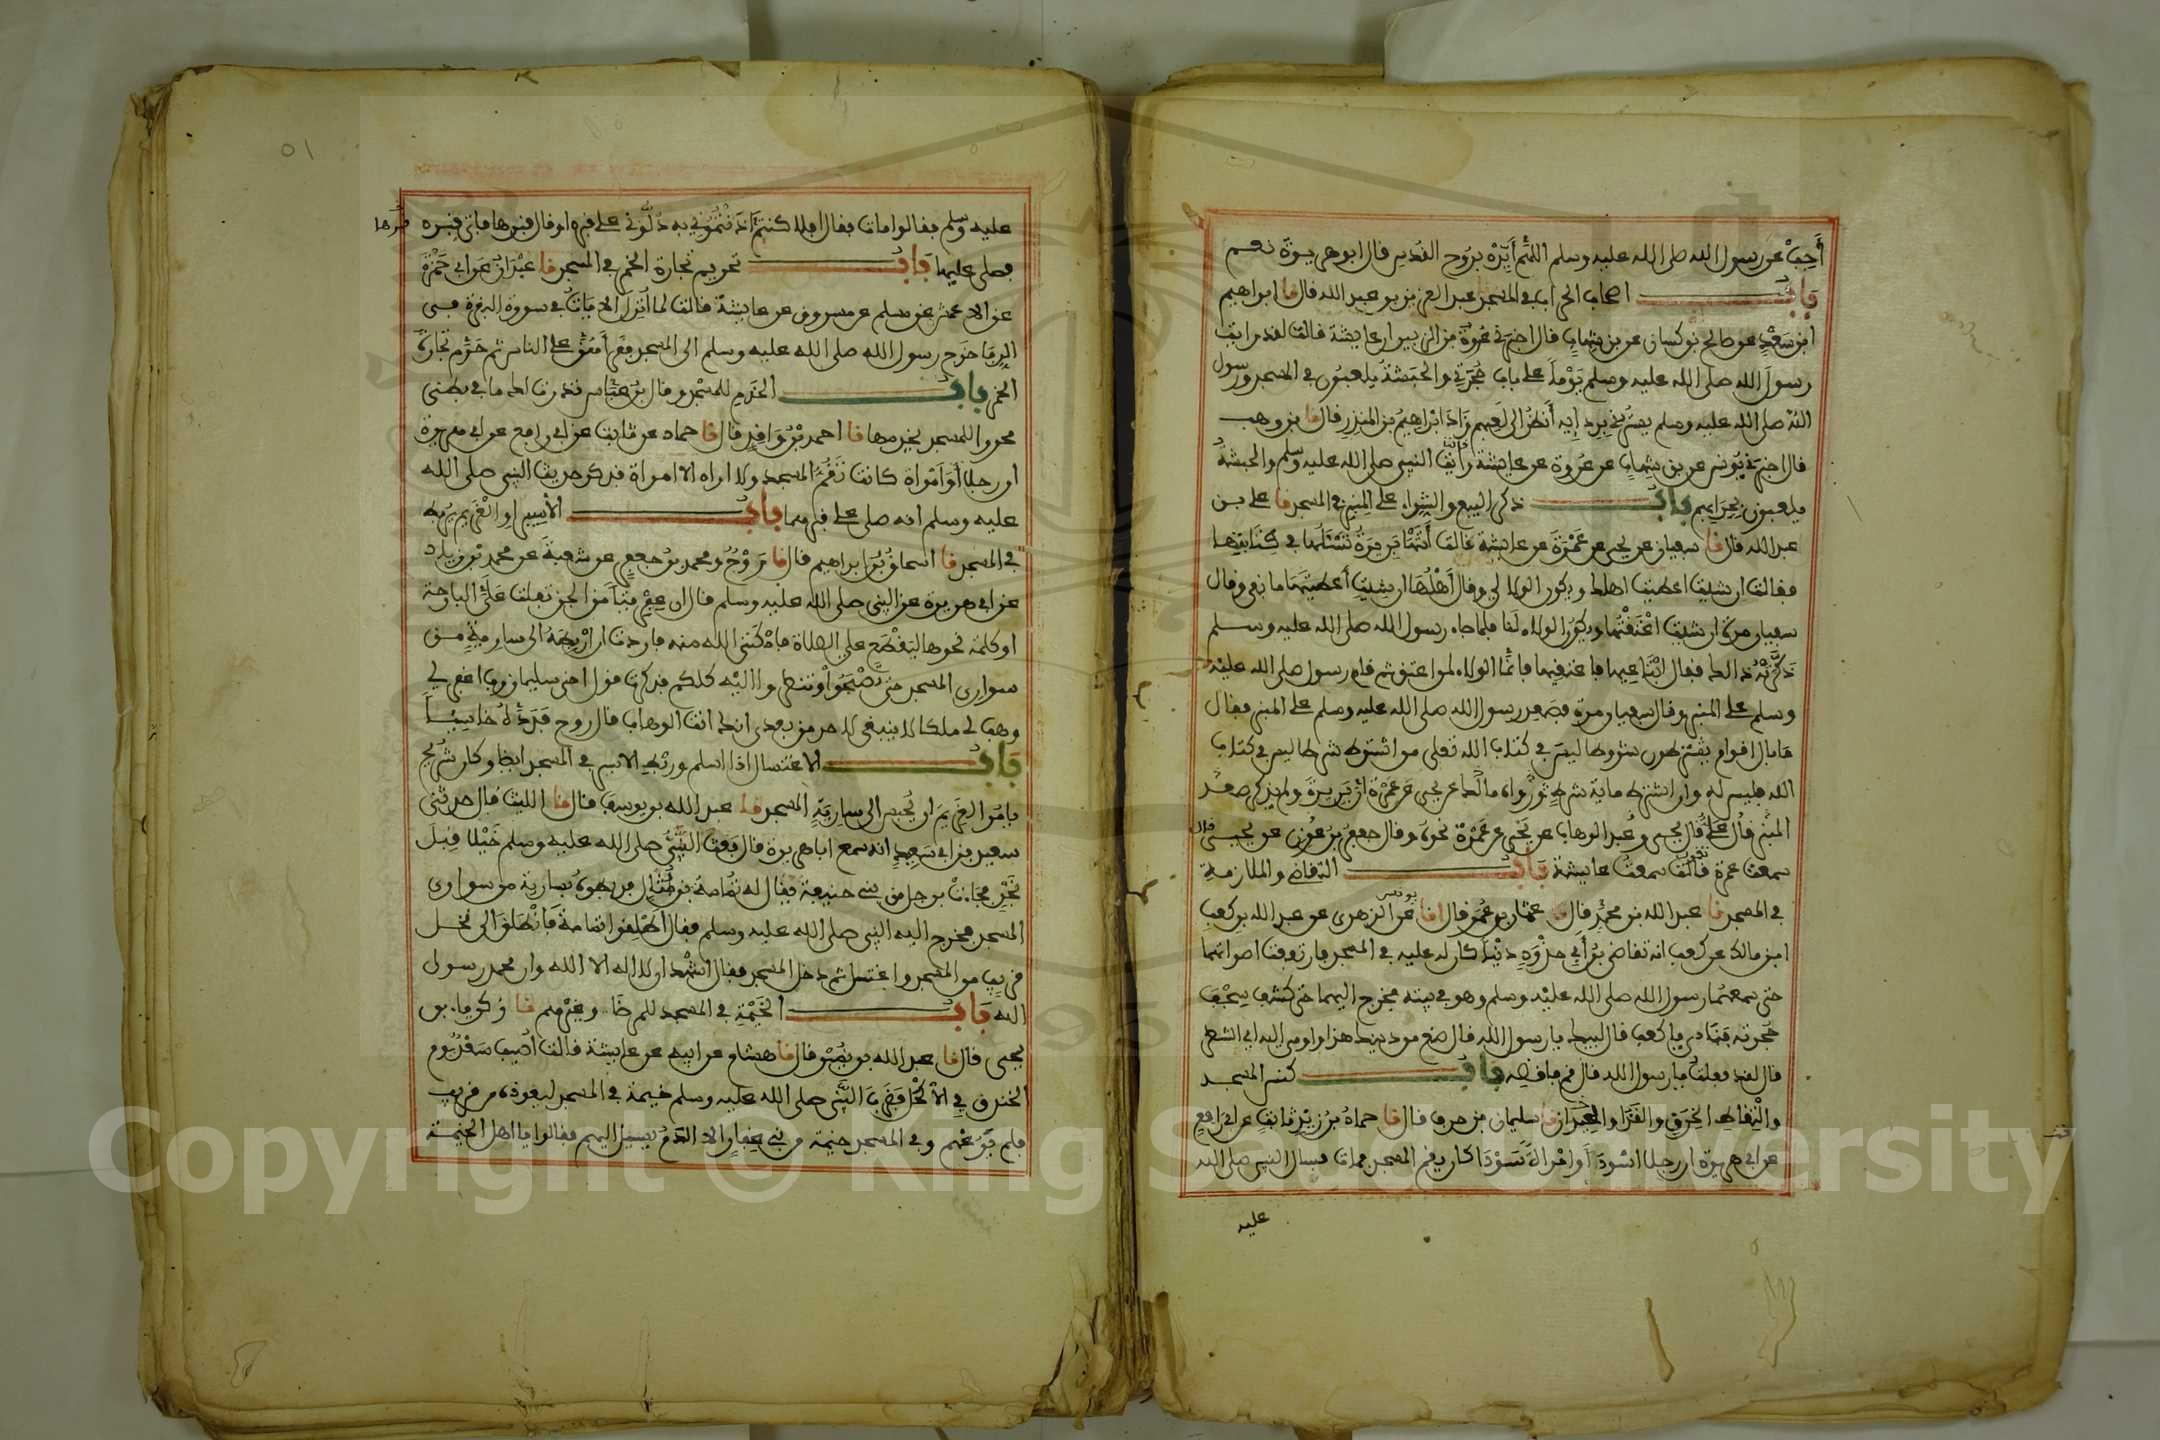 أَجِبْ عن رسول الله صلى الله عليه وسلم اللهم أَيِّدْهُ بِرُوحِ القُدُسِ قال ابو هريرة نعم
بَابُ اصحاب الحراب في المسجد نا عبد العزيز بن عبد الله قال نا ابراهيم
ابن سَعْدٍ عن صالح بن كيسان عن بن شهاب قال اخبرني عُرْوَةُ بن الزبير ان عايشة قالت لقد رايت
رسول الله صلى الله عليه وسلم يَوْمًا على باب حُجْرَتِي والحَبَشَةُ يلعبون في المسجد ورسول
الله صلى الله عليه وسلم يسترني بردايه أَنظُرُ الى لعبهم زَادَ ابراهيم بن المنذر قال نا بن وهب
قال اخبرني يُونس عن بن شهاب عن عروة عن عايشة قالت رايت النبي صلى الله عليه وسلم والحبشةُ
يلعبون بحرابهم بابُ ذكر البيع والشراء على المنبر في المسجد نا علي بن
عبد الله قال نا سفيان عن يحيى عن عَمْرَةَ عن عايشة قالت أَتَتْهَا بَرِيرَةُ تَسْئَلُهَا في كِتَابَتِهَا
فقالت ان شيتِ اعطيت اهلك ويكون الولاء لي وقال أَهْلُهَا ان شيتِ أَعطيتِهَا ما بقي وقال
سفيان مرة ان شيتِ اعْتَقْتِهَا ويكونُ الولاء لَنَا فلما جاء رسول الله صلى الله عليه وسلم
ذَكَّرَتْهُ ذالك فقال ابْتَاعِيهَا فاعتقيها فانما الولاء لمن اعتق ثم قام رسول الله صلى الله عليه
وسلم على المنبر وقال سفيان مرة فصعد رسول الله صلى الله عليه وسلم على المنبر فقال
ما بال اقوام يشترطون شروطا ليس في كتاب الله تعلى من اشترط شرطا ليس في كتاب
الله فليس له وان اشترط ماية شرط ورَوَاه مالك عن يحيى عن عَمْرَةَ ان بَرِيرَةَ ولم يذكر صعد
المنبر قال علي قال يحيى وعبد الوهاب عن يحيى عن عَمْرَةَ نحوه وقال جعفر بن عون عن يحيى قال
سمعت عمرة تقول قالت سمعت عايشة بَابُ التقاضي والملازمة
في المسجد نا عبد الله بن محمد قال نا عثمان بن عُمَر قال انا يونس عن الزهري عن عبد الله بن كعب
ابن مالك عن كعب انه تقاضى بنَ أبي حدْرَدٍ دَيْنًا كان له عليه في المسجد فارتفعت اصواتهما
حتى سمعهما رسول الله صلى الله عليه وسلم وهو في بيته فخرج اليهما حتى كشف سِجْفَ
حُجرته فَنَادى يا كعب قال لبيك يا رسول الله قال ضع من دينك هذا واومى اليه اي الشطر
قال لقد فعلت يا رسول الله قال قم فاقضه بابُ كنس المسجد
والْتِقَاطِ الخِرَقِ والقَذَا والعِيدَانِ نا سليمان بن حرب قال نا حمادُ بن زيد عن ثابت عن ابي رافع
عن ابي هريرة ان رجلا اسْوَدَ أو امْراةً سَوْدَا كان يقم المسجد فمات فسال النبي صلى الله
عليه
٥١
عليه وسلم فقالوا مات فقال افلا كنتم آذَنْتُمُونِي به دُلُّونِي على قبره او قال قبرها فاتى قبره
قبرها
فصلى عليها بَابُ تحريم تجارة الخمر في المسجد نا عَبْدَانُ عن ابي حَمْزَةَ
عن الاعمش عن مسلم عن مسروق عن عايشة قالت لما أُنْزِلَ الايَاتُ في سورة البقرة في
الرِّبَا خرج رسول الله صلى الله عليه وسلم الى المسجد فقرأَهُنَّ على الناس ثم حَرَّمَ تجارة
الخمر بابُ الخَدَمِ للمسجد وقال بنُ عَبَّاسٍ نذرت لك ما في بطني
محررا للمسجد يخدمها نا احمد بنُ وَاقِدٍ قال نا حماد عن ثابت عن ابي رافع عن ابي هريرة
ان رجلا أوِ امْرَأةً كانت تَقُمُّ المسجد ولا اراه الا امراة فذكر حديث النبي صلى الله
عليه وسلم انه صلى على قبرهما بابُ الأسير او الغريم يُربط
في المسجد نا اسحاق بنُ ابراهيم قال نا رَوْحٌ ومحمد بن جعفر عن شعبةَ عن محمد بْن زياد
عن ابي هريرة عن النبي صلى الله عليه وسلم قال ان عفريتا من الجن تفلت عَلَيَّ البارحة
او كلمة نحوها ليَقْطَعَ علي الصلاة فامْكَنَنِي الله منه فاردت ان ارْبِطَهُ الى سارية من
سواري المسجد حتى تُصْبِحُوا وتنظروا اليه كلكم فذكرت قول اخي سليمان رب اغفر لي
وهب لي ملكا لا ينبغي لاحد من بعدي انك انت الوهاب قال روح فَرَدَّهُ خاسِئًا
بَابُ الاغتسال اذا اسلم وربْطِ الاسير في المسجد ايضا وكان شُرَيْحٌ
يامُرُ الغَرِيمَ ان يُحبس الى ساريةِ المسجد نا عبد الله بن يوسف قال نا الليث قال حدثني
سعيد بن ابي سَعِيدٍ انه سمع ابا هريرة قال بَعَثَ النَّبِيُّ صلى الله عليه وسلم خَيْلا قِبَلَ
نَجْدٍ فجاءت برجل من بني حنيفة يقال له ثُمَامةُ بنُ أُثَالٍ فربطوه بسارية من سواري
المسجد فخرج اليه النبي صلى الله عليه وسلم فقال اطْلِقوا ثمامة فَانْطَلَقَ الى نخل
قريب من المسجد واغتسل ثم دخل المسجد فقال أشْهَد ان لا اله الا الله وان محمد رسول
الله بَابُ الخَيْمَةِ في المسجد للمرضَا وغيْرهم نا زكريا بن
يحيى قال نا عبد الله بن نُمَيْرٍ قال نا هشام عن ابيه عن عايشة قالت أُصِيبَ سَعْدٌ يوم
الخندق في الأكْحَلِ فَضَرَبَ النَّبِيُّ صلى الله عليه وسلم خيمة في المسجد ليعوده من قريب
فلم يَرُعْهُم وفي المسجد خيمة من بني غِفارٍ الا الدَّمُ يسيل اليهم فقالوا يا اهل الخيمة
Copyright © King Saud University